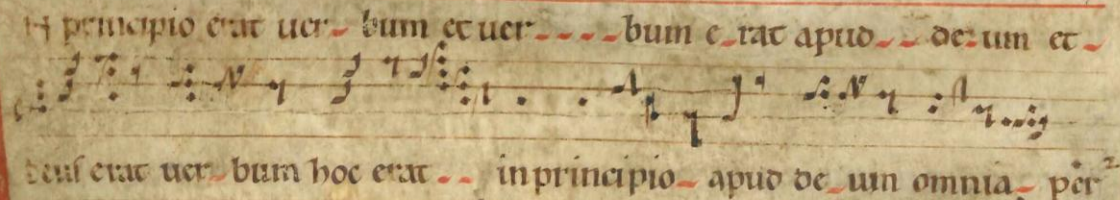 In principio erat uer- bum et uer- - - - - bum e-rat apud- - de-um et-
deus erat uer-bum hoc erat - - in principio- apud de-um omnia- per